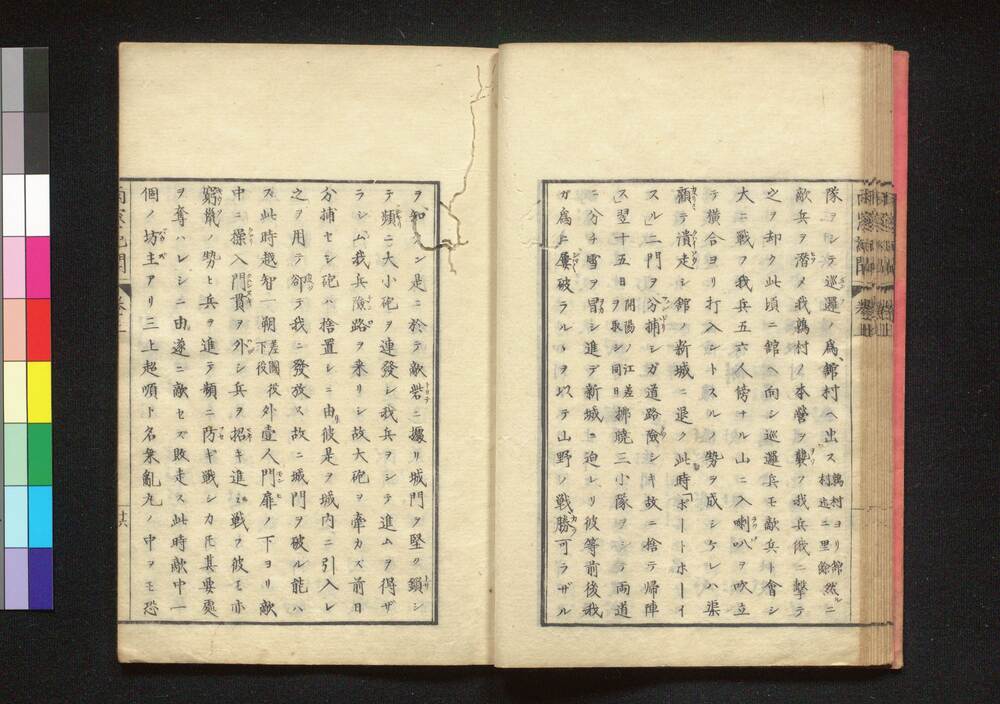 隊ヲシテ巡邏ノ為、館村ヘ出ス鶉村ヨリ館村迄二里餘然ルニ
敵兵ヲ潜メ我鶉村ノ本營ヲ襲フ我兵俄ニ撃テ
之ヲ却ク此頃ニ館ヘ向シ巡邏兵モ敵兵ト會シ
大ニ戦フ我兵五六人傍ナル山ニ入喇叭ヲ吹立
テ横合ヨリ打入ントスルノ勢ヲ成シケレハ渠
顧テ潰走シ館ノ新城ニ退ク此時「ボートホーイ
スル」二門ヲ分捕シガ道路險シキ故ニ捨テ帰陣
ス翌十五日開陽ノ江差ヲ取シ同日拂曉三小隊ヲシテ両道
ニ分チ雪ヲ冒シ進デ新城ニ迫レリ彼等前後我
ガ為ニ屢破ラルヽヲ以テ山野ノ戦勝可ラザル
ヲ知ルン是ニ於テ敵砦ニ據リ城門ヲ堅ク鎖シ
テ頻ニ大小砲ヲ連發シ我兵ヲシテ進ムヲ得ザ
ラシム我兵險路ヲ来リシ故大砲ヲ牽カズ前日
分捕セシ砲ハ捨置レニ由彼是ヲ城内ニ引入レ
之ヲ用テ卻テ我ニ發放ス故ニ城門ヲ破ル能ハ
ス此時越智一朔差圖役下役外壹人門扉ノ下ヨリ敵
中ニ操入門貫ヲ外シ兵ヲ招キ進ミ戦ヲ彼モ亦
窮鼠ノ勢ヒ兵ヲ進テ頻ニ防ギ戦シカ𪜈其要處
ヲ奪ハレシニ由遂ニ敵セズ敗走ス此時敵中一
個ノ坊主アリ三上超順ト名乗亂丸ノ中ヲモ恐